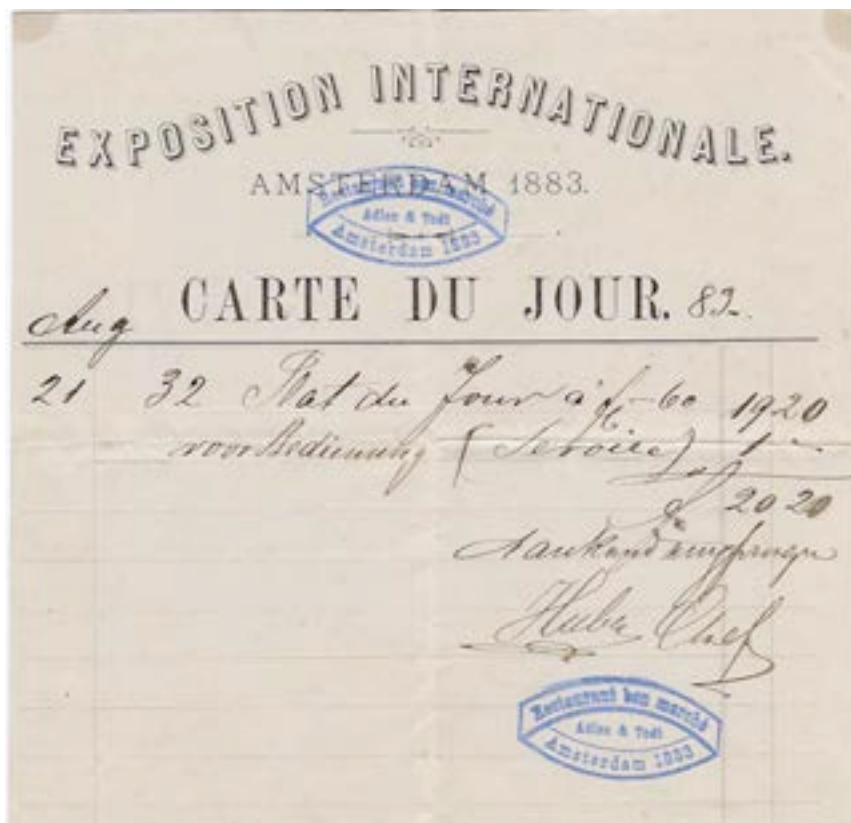 EXPOSITION INTERNATIONALE.
AMSTERDAM 1883.
Restaurant bon marché
Adler & Todt
Amsterdam 1883
CARTE DU JOUR. 83.
Aug
21 32 Plat du Jour à f -60 19 20
voor Bedienung (Service) 1 -
f 20 20
dankend empfangen
Huber Chef
Restaurant bon marché
Adler & Todt
Amsterdam 1883